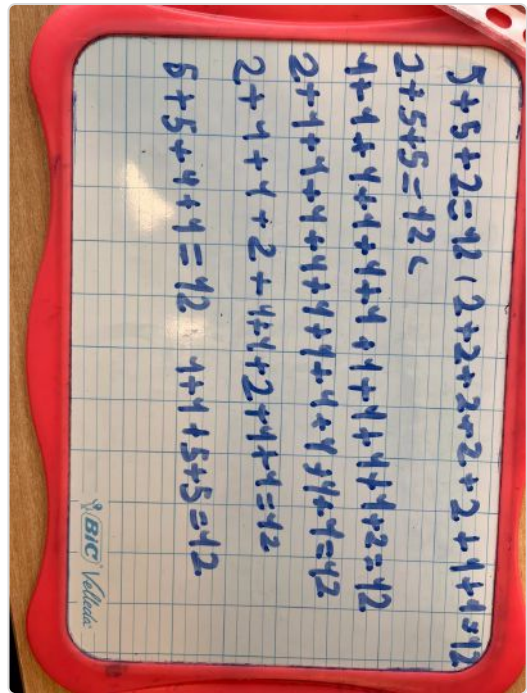 5+5+2=12 ( 2+2+2+2+2+1+1=12
2+5+5=12 (
1+1+1+1+1+1+1+1+1+1+2=12
2+1+1+1+1+1+1+1+1+1+1=12
2+1+1+2+1+1+2+1+1=12
5+5+1+1=12 1+1+5+5=12
BIC Velleda